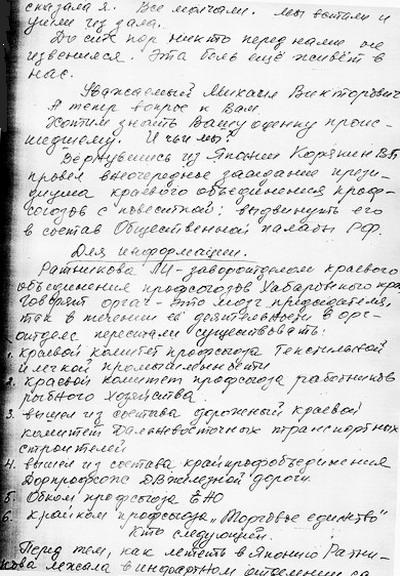 сказала я. Все молчали. Мы встали и
ушли из зала.
До сих пор никто перед нами не
извенился. Эта боль ещё живёт в
нас.
Уважаемый Михаил Викторович
А тепер вопрос к Вам.
Хотим знать Вашу оценку проис-
шедшему. И чьи мы?
Вернувшись из Японии Корякин В.П
провел внеочередное заседание прези-
диума краевого объединения проф-
союзов с повесткой: выдвинуть его
в состав Общественной палаты РФ.
Для информации.
Ратникова ЛИ - заворготделом краевого
объединения профсоюзов Хабаровского кра
говорят орган - это мозг председателя,
так в течении её деятельности в орг-
отделе перестали существовать:
1. краевой комитет профсоюза Текстильной
и легкой промышленности
2. краевой комитет профсоюза работников
рыбного хозяйства.
3. вышел из состава дорожный краевой
комитет Дальневосточных транспортных
строителей
4. вышел из состава крайпрофобъединения
Дорпрофсож ДВжелезной дороги.
5. Обком профсоюза ЕАО
6. крайком профсоюза „Торговое единство"
Кто следующий.
Перед тем, как лететь в Японию Ратни-
кова лежала в инфарктном отделении